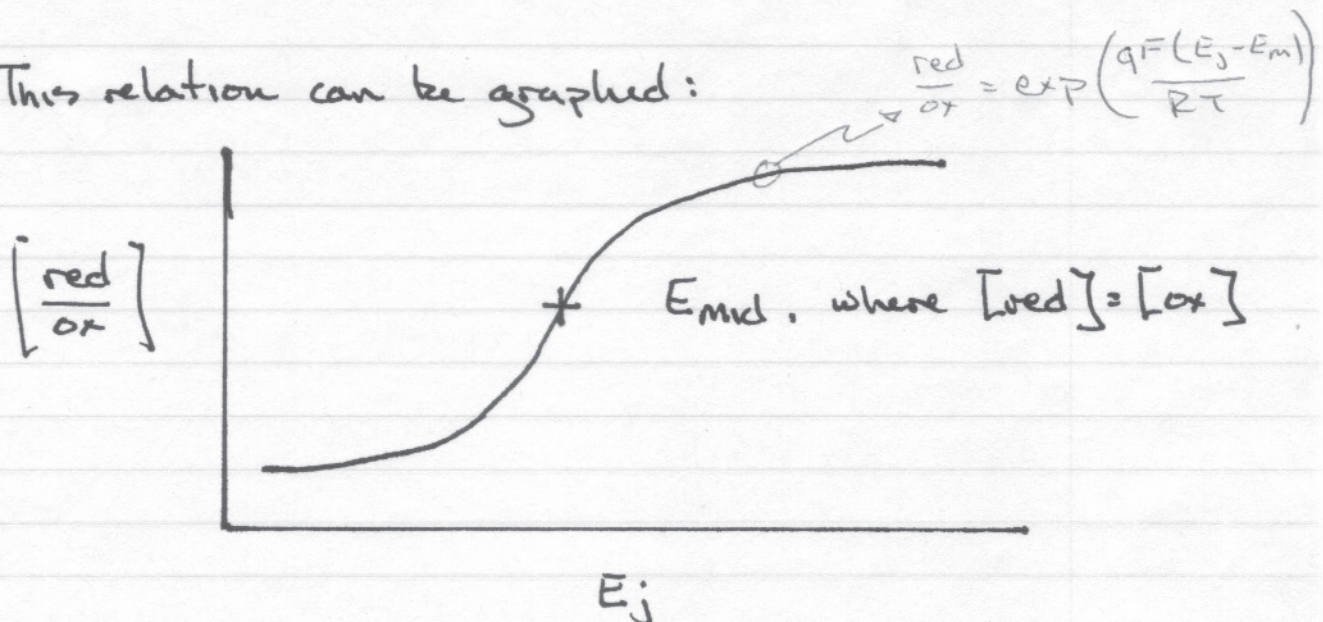 This relation can be graphed:
red/ox = exp(qF(Ej-Em)/RT)
[red/ox]
Emid, where [red]=[ox]
Ej